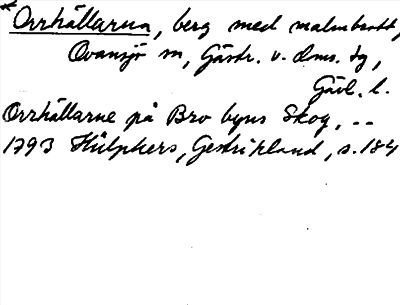 *Orrhällarna, berg med malmbrott,
Ovansjö sn, Gästr. v. dms. dg,
Gävl. l.
Orrhällarne på Bro byns Skog, --
1793 Hülphers, Gestrikland, s. 184